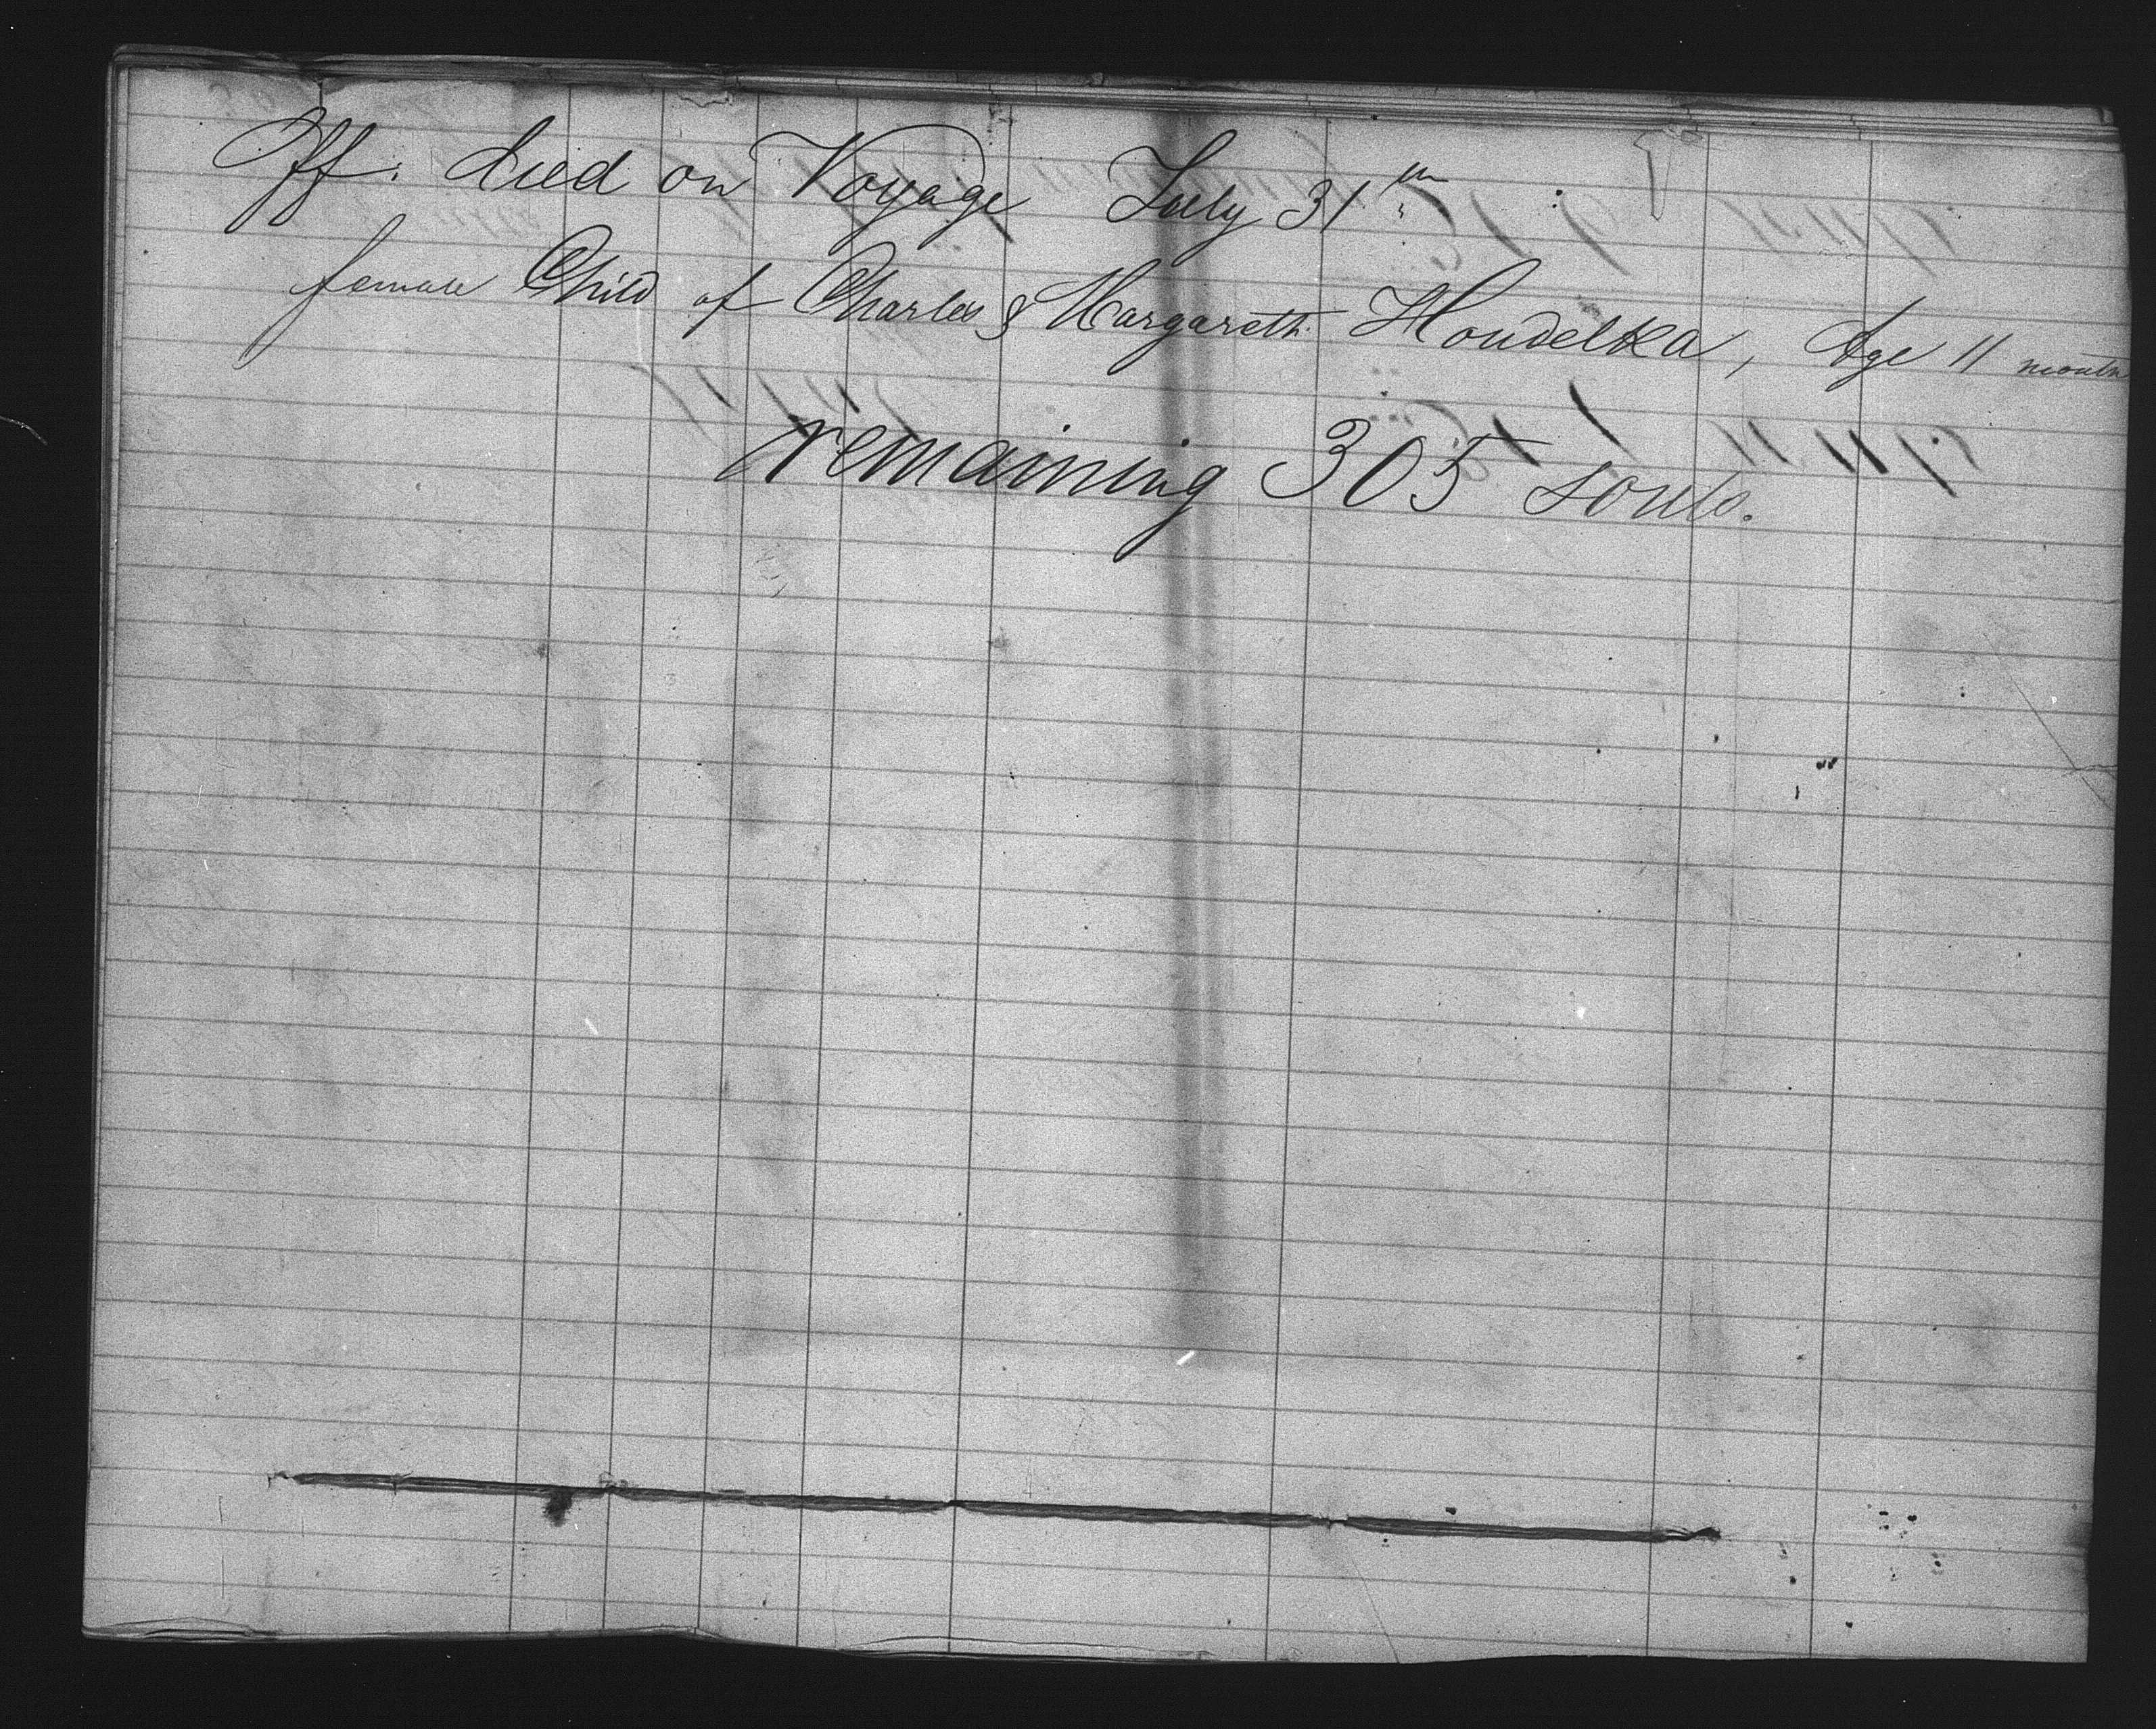 Off. died on Voyage July 31th
female Child of Charles & Margareth Houdelka, Age 11 month
remaining 305 souls.